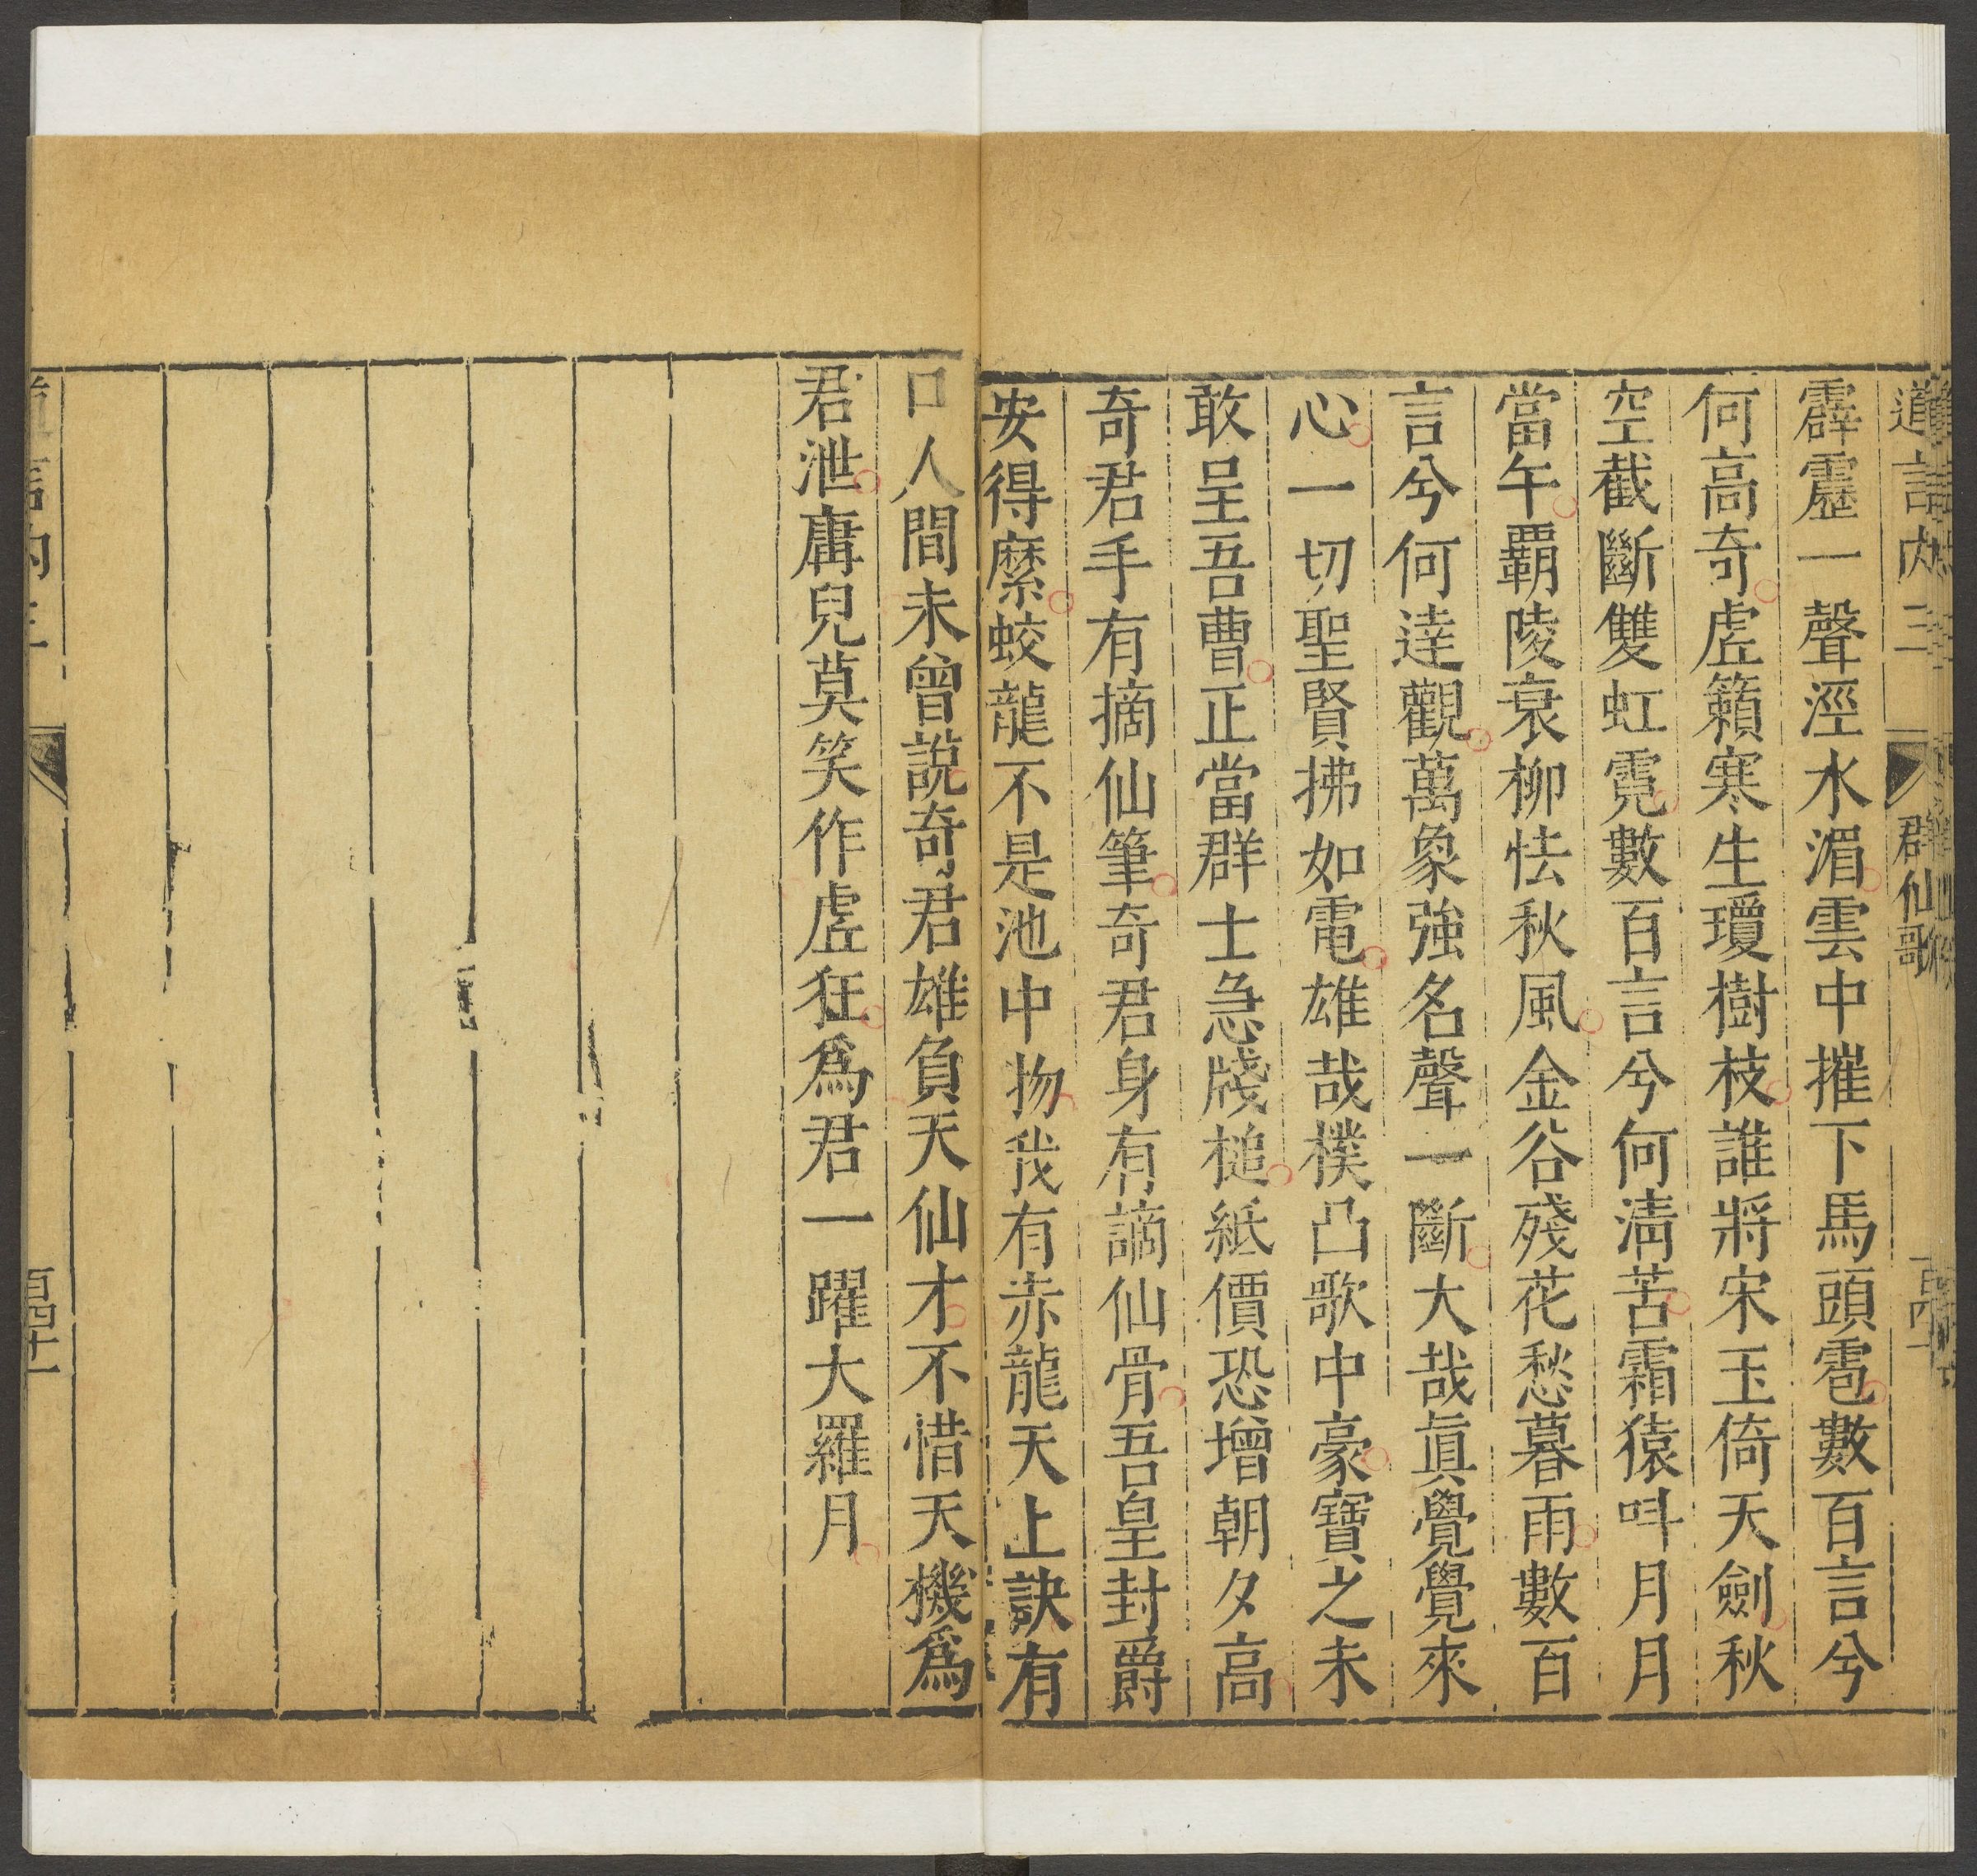 道言内三 群仙歌
霹靂一聲涇水湄雲中摧下馬頭雹數百言兮
何高奇虗籟寒生瓊樹枝誰將宋玉倚天劍秋
空截斷雙虹霓數百言兮何淸苦霜猿呌月月
當午覇陵衰柳怯秋風金谷殘花愁暮雨數百
言兮何達觀萬象強名聲一斷大哉眞覺覺來
心一切聖賢拂如電雄哉樸凸歌中豪寶之未
敢呈吾曹正當群士急牋槌紙價恐增朝夕高
奇君手有摘仙筆奇君身有謫仙骨吾皇封爵
安得縻蛟龍不是池中物我有赤龍天上訣有
口人間未曾說奇君雄負天仙才不惜天機爲
君泄庸兒莫笑作虗狂爲君一躍大羅月